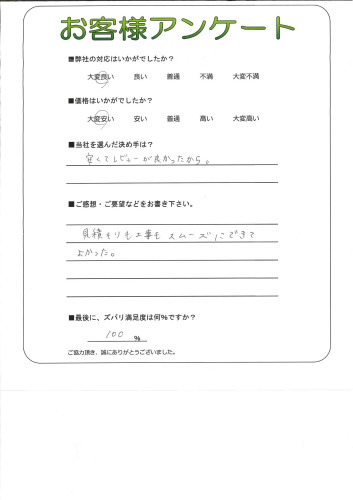 お客様アンケート
■弊社の対応はいかがでしたか？
大変良い 良い 普通 不満 大変不満
■価格はいかがでしたか？
大変安い 安い 普通 高い 大変高い
■当社を選んだ決め手は？
安くてレビューが良かったから。
■ご感想・ご要望などをお書き下さい。
見積もりも工事もスムーズにできて
よかった。
■最後に、ズバリ満足度は何％ですか？
100 %
ご協力頂き、誠にありがとうございました。